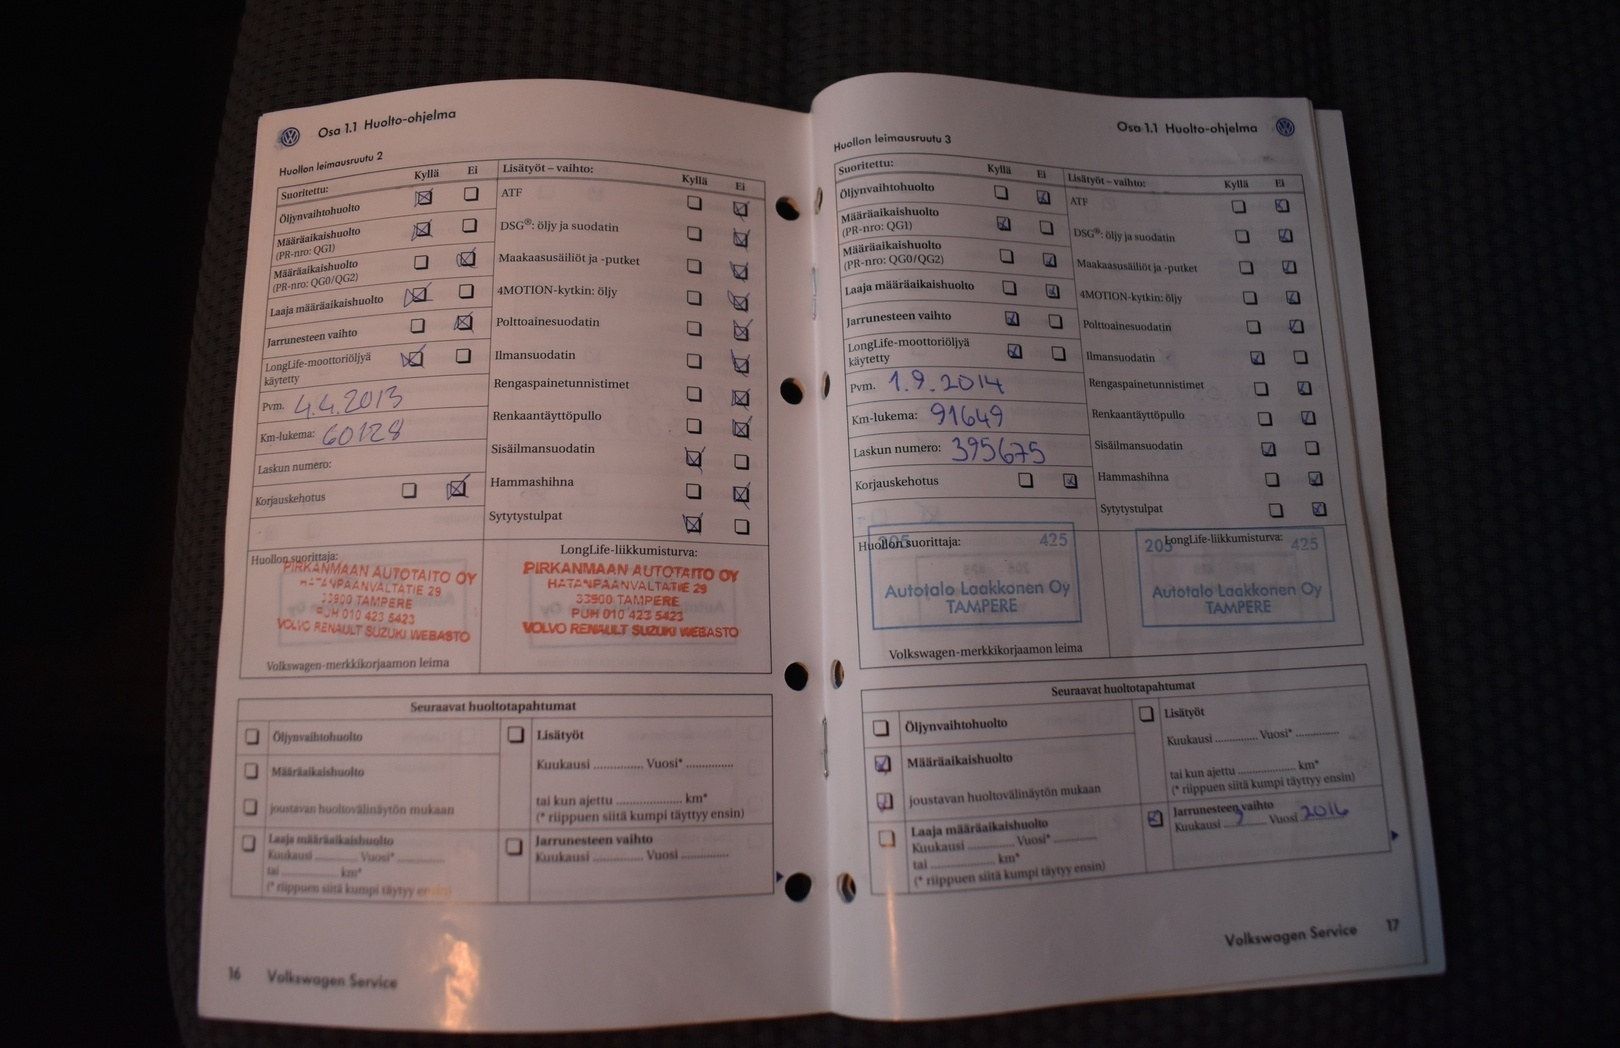 Osa 1.1 Huolto-ohjelma
Huollon leimausruutu 2
Suoritettu:
Kyllä Ei
Öljynvaihtohuolto
Määräaikaishuolto
(PR-nro: QG1)
Määräaikaishuolto
(PR-nro: QG0/QG2)
Laaja määräaikaishuolto
Jarrunesteen vaihto
LongLife-moottoriöljyä
käytetty
Pvm. 4.4.2013
Km-lukema: 60128
Laskun numero:
Korjauskehotus
Lisätyöt – vaihto:
Kyllä Ei
ATF
DSG®: öljy ja suodatin
Maakaasusäiliöt ja -putket
4MOTION-kytkin: öljy
Polttoainesuodatin
Ilmansuodatin
Rengaspainetunnistimet
Renkaantäyttöpullo
Sisäilmansuodatin
Hammashihna
Sytytystulpat
Huollon suorittaja:
PIRKANMAAN AUTOTAITO OY
HATANPÄÄNVALTATIE 29
33900 TAMPERE
PUH 010 423 5423
VOLVO RENAULT SUZUKI WEBASTO
Volkswagen-merkkikorjaamon leima
LongLife-liikkumisturva:
PIRKANMAAN AUTOTAITO OY
HATANPÄÄNVALTATIE 29
33900 TAMPERE
PUH 010 423 5423
VOLVO RENAULT SUZUKI WEBASTO
Seuraavat huoltotapahtumat
Öljynvaihtohuolto
Määräaikaishuolto
joustavan huoltovälinäytön mukaan
Laaja määräaikaishuolto
Kuukausi ............ Vuosi* ............
tai .................... km*
(* riippuen siitä kumpi täytyy ensin)
Lisätyöt
Kuukausi ............ Vuosi* ............
tai kun ajettu .................... km*
(* riippuen siitä kumpi täyttyy ensin)
Jarrunesteen vaihto
Kuukausi ............ Vuosi ............
16 Volkswagen Service
Osa 1.1 Huolto-ohjelma
Huollon leimausruutu 3
Suoritettu:
Kyllä Ei
Öljynvaihtohuolto
Määräaikaishuolto
(PR-nro: QG1)
Määräaikaishuolto
(PR-nro: QG0/QG2)
Laaja määräaikaishuolto
Jarrunesteen vaihto
LongLife-moottoriöljyä
käytetty
Pvm. 1.9.2014
Km-lukema: 91649
Laskun numero: 395675
Korjauskehotus
Lisätyöt – vaihto:
Kyllä Ei
ATF
DSG®: öljy ja suodatin
Maakaasusäiliöt ja -putket
4MOTION-kytkin: öljy
Polttoainesuodatin
Ilmansuodatin
Rengaspainetunnistimet
Renkaantäyttöpullo
Sisäilmansuodatin
Hammashihna
Sytytystulpat
Huollon suorittaja:
205 425
Autotalo Laakkonen Oy
TAMPERE
Volkswagen-merkkikorjaamon leima
LongLife-liikkumisturva:
205 425
Autotalo Laakkonen Oy
TAMPERE
Seuraavat huoltotapahtumat
Öljynvaihtohuolto
Määräaikaishuolto
joustavan huoltovälinäytön mukaan
Laaja määräaikaishuolto
Kuukausi ............ Vuosi* ............
tai .................... km*
(* riippuen siitä kumpi täytyy ensin)
Lisätyöt
Kuukausi ............ Vuosi* ............
tai kun ajettu .................... km*
(* riippuen siitä kumpi täyttyy ensin)
Jarrunesteen vaihto
Kuukausi 9 Vuosi 2016
Volkswagen Service 17